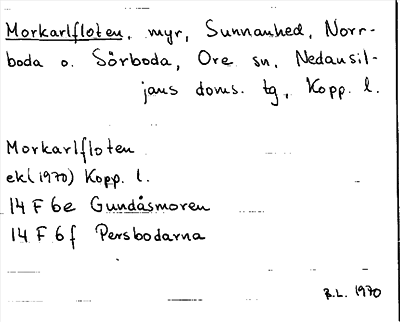 Morkarlfloten, myr, Sunnanhed, Norr-
boda o. Sörboda, Ore sn, Nedansil-
jans doms. tg, Kopp. l.
Morkarlfloten
ek (1970) Kopp. l.
14 F 6e Gundåsmoren
14 F 6f Persbodarna
B.L. 1970